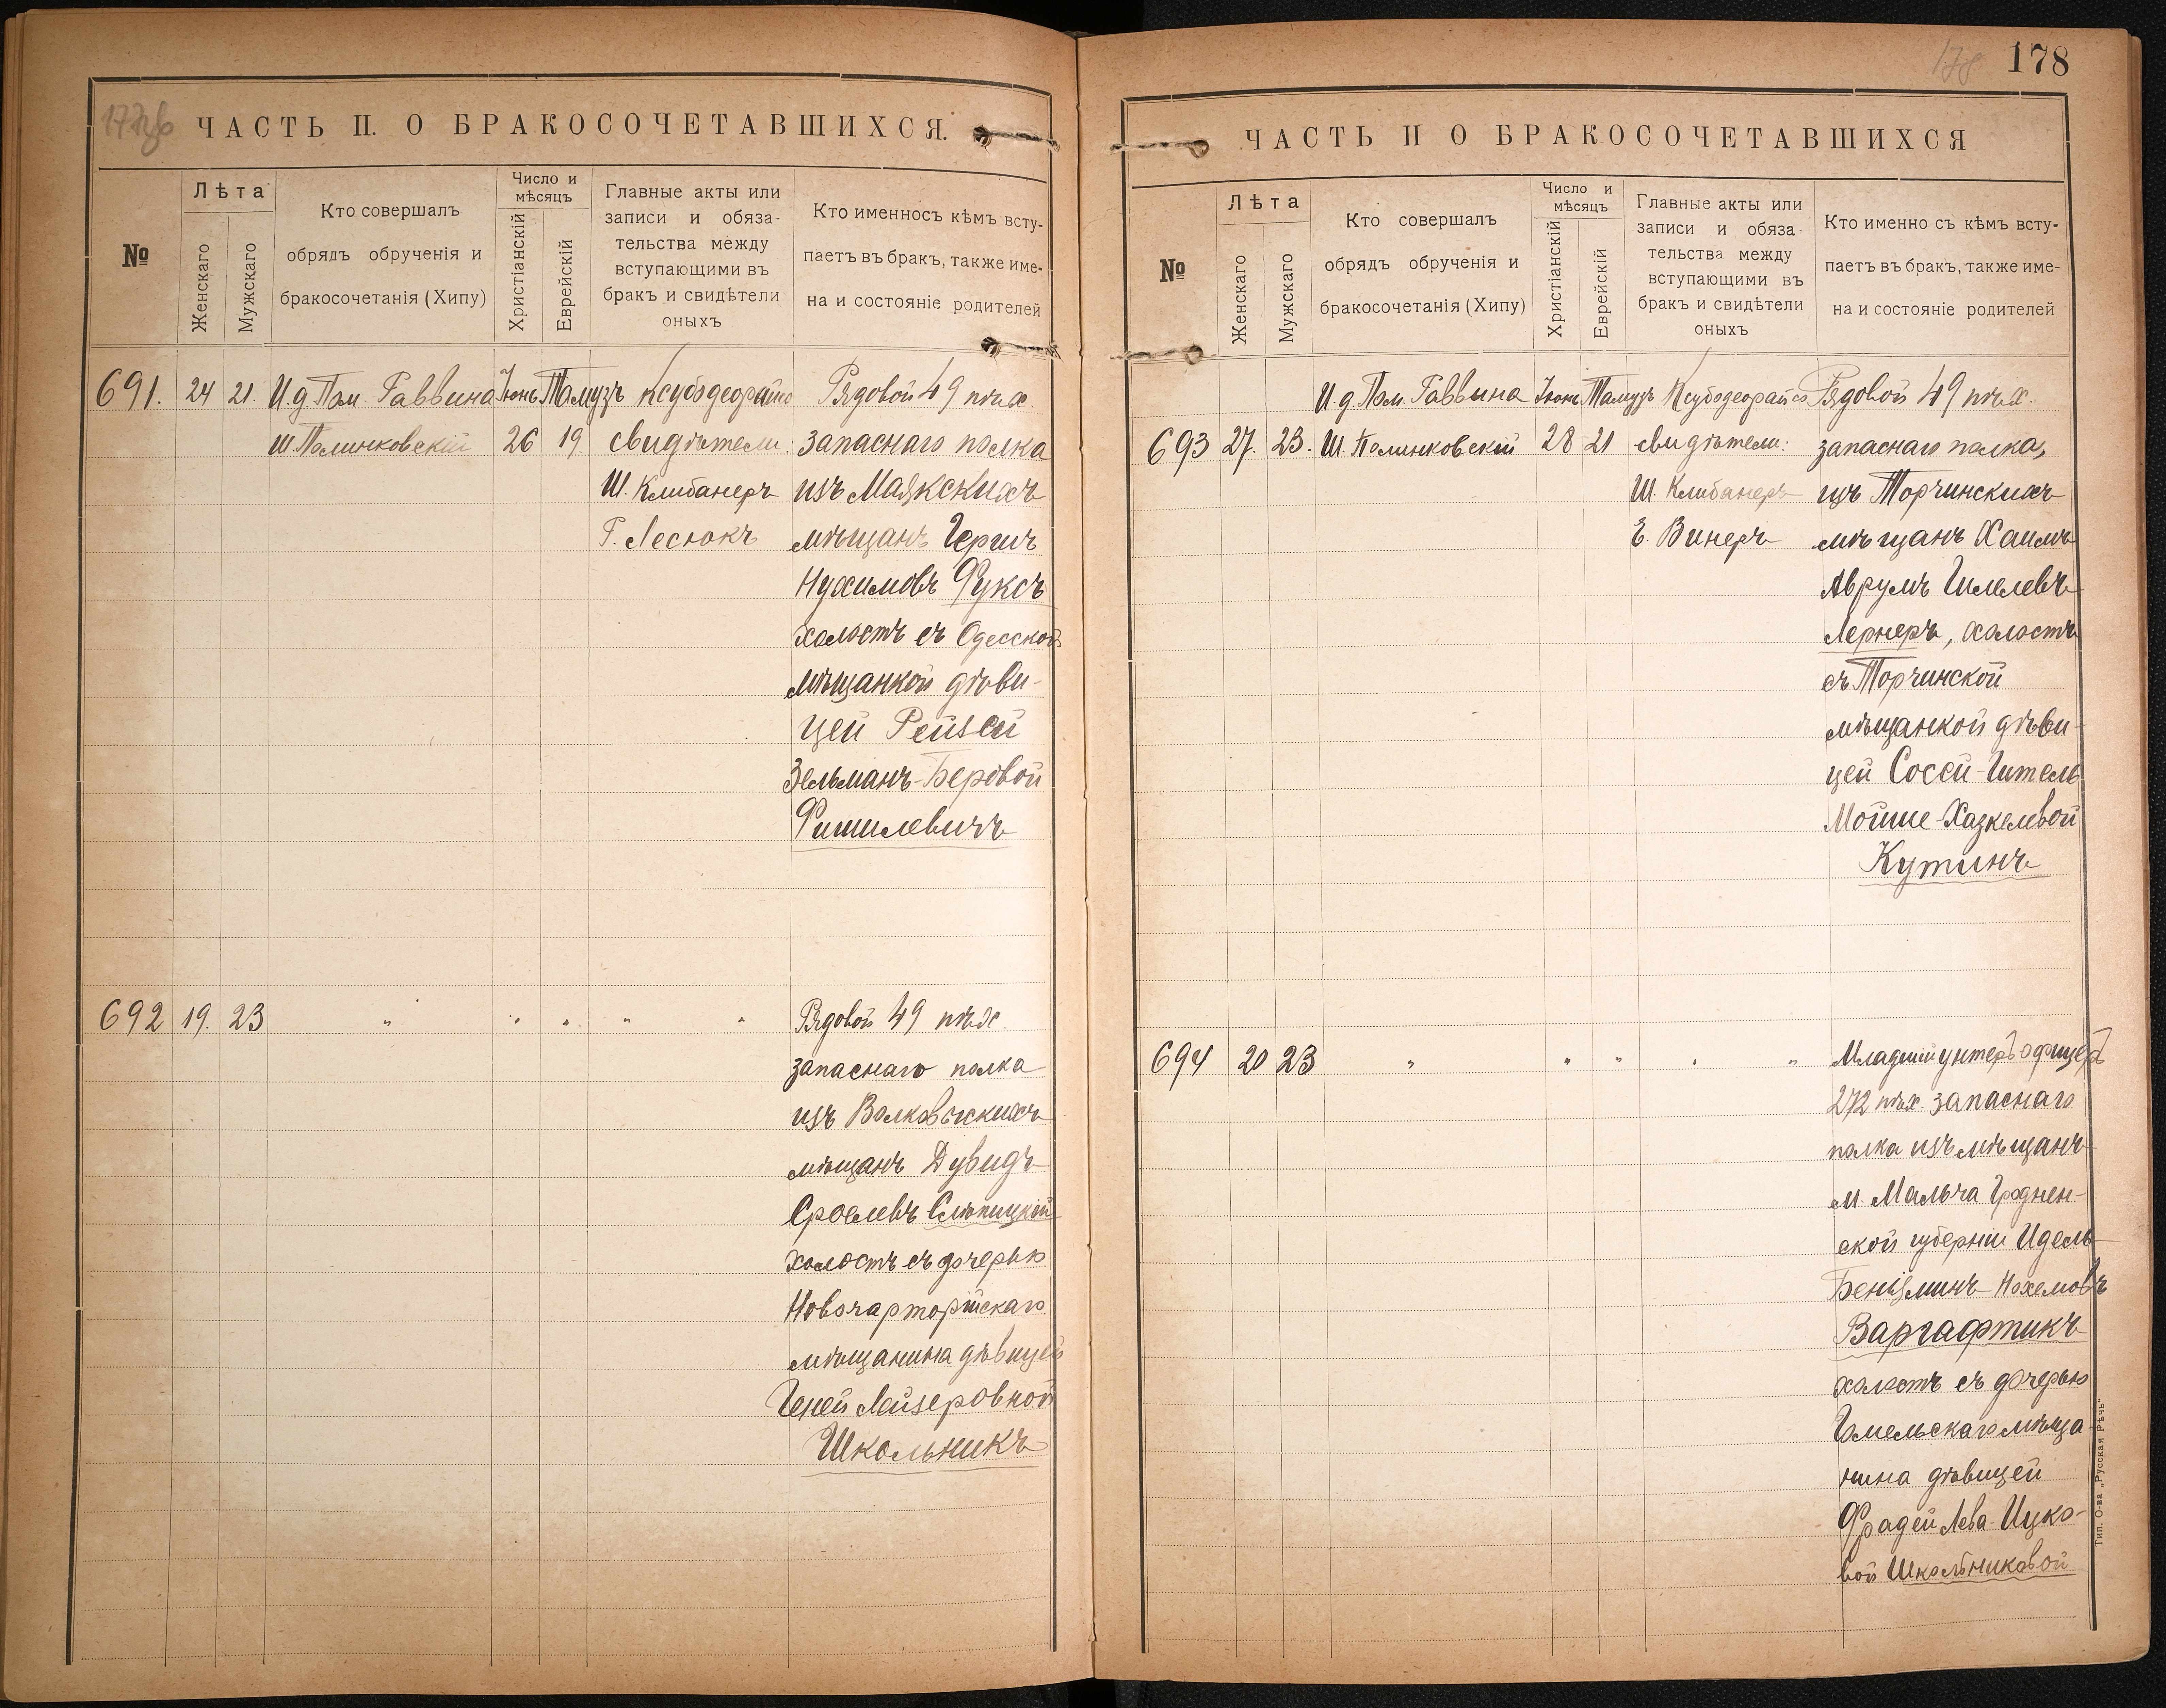 177об
ЧАСТЬ II. О БРАКОСОЧЕТАВШИХСЯ.
№
Лѣта
Женскаго
Мужскаго
Кто совершалъ
обрядъ обрученія и
бракосочетанія (Хипу)
Число и
мѣсяцъ
Христіанскій
Еврейскій
Главные акты или
записи и обяза-
тельства между
вступающими въ
бракъ и свидѣтели
оныхъ
Кто именносъ кѣмъ всту-
паетъ въ бракъ, также име-
на и состояніе родителей
691. 24 21. И.д. Пом. Раввина Іюнь Тамузъ Ксубодеорайсо Рядовой 49 пѣх
Ш. Полинковскій 26 19. свидѣтели: запаснаго полка
Ш. Клибанеръ изъ Маякскихъ
Г. Лесюкъ мѣщанъ Гершъ
Нухимовъ Фуксъ
холостъ съ Одесской
мѣщанкой дѣви-
цей Рейзей
Зельманъ-Беровой
Фишилевичъ
692 19. 23 " " " " " Рядовой 49 пѣх.
запаснаго полка
изъ Волковыскихъ
мѣщанъ Дувидъ
Сроелевъ Слѣпицкій
холостъ съ дочерью
Новочарторійскаго
мѣщанина дѣвицей
Геней Лейзеровной
Школьникъ
178
178
ЧАСТЬ II О БРАКОСОЧЕТАВШИХСЯ
№
Лѣта
Женскаго
Мужскаго
Кто совершалъ
обрядъ обрученія и
бракосочетанія (Хипу)
Число и
мѣсяцъ
Христіанскій
Еврейскій
Главные акты или
записи и обяза-
тельства между
вступающими въ
бракъ и свидѣтели
оныхъ
Кто именно съ кѣмъ всту-
паетъ въ бракъ, также име-
на и состояніе родителей
И.д. Пом. Раввина Іюнь Тамузъ Ксубодеорайсо Рядовой 49 пѣх.
693 27. 23. Ш. Полинковскій 28 21 свидѣтели: запаснаго полка,
Ш. Клибанеръ изъ Торчинскихъ
Е. Винеръ мѣщанъ Хаимъ
Аврумъ Гилелевъ
Лернеръ, холостъ
съ Торчинской
мѣщанкой дѣви-
цей Сосей-Гитель
Мойше-Хазкелевой
Кутинъ
694 20 23 " " " " " Младшій унтеръ офицеръ
272 пѣх. запаснаго
полка изъ мѣщанъ
м. Мальча Гроднен-
ской губерніи Идель
Беніяминъ-Нохемовъ
Варгафтикъ
холостъ съ дочерью
Гомельскаго мѣща
нина дѣвицей
Фрадей Лева-Ицко-
вой Школьниковой
Тип. О-ва „Русская Рѣчь"